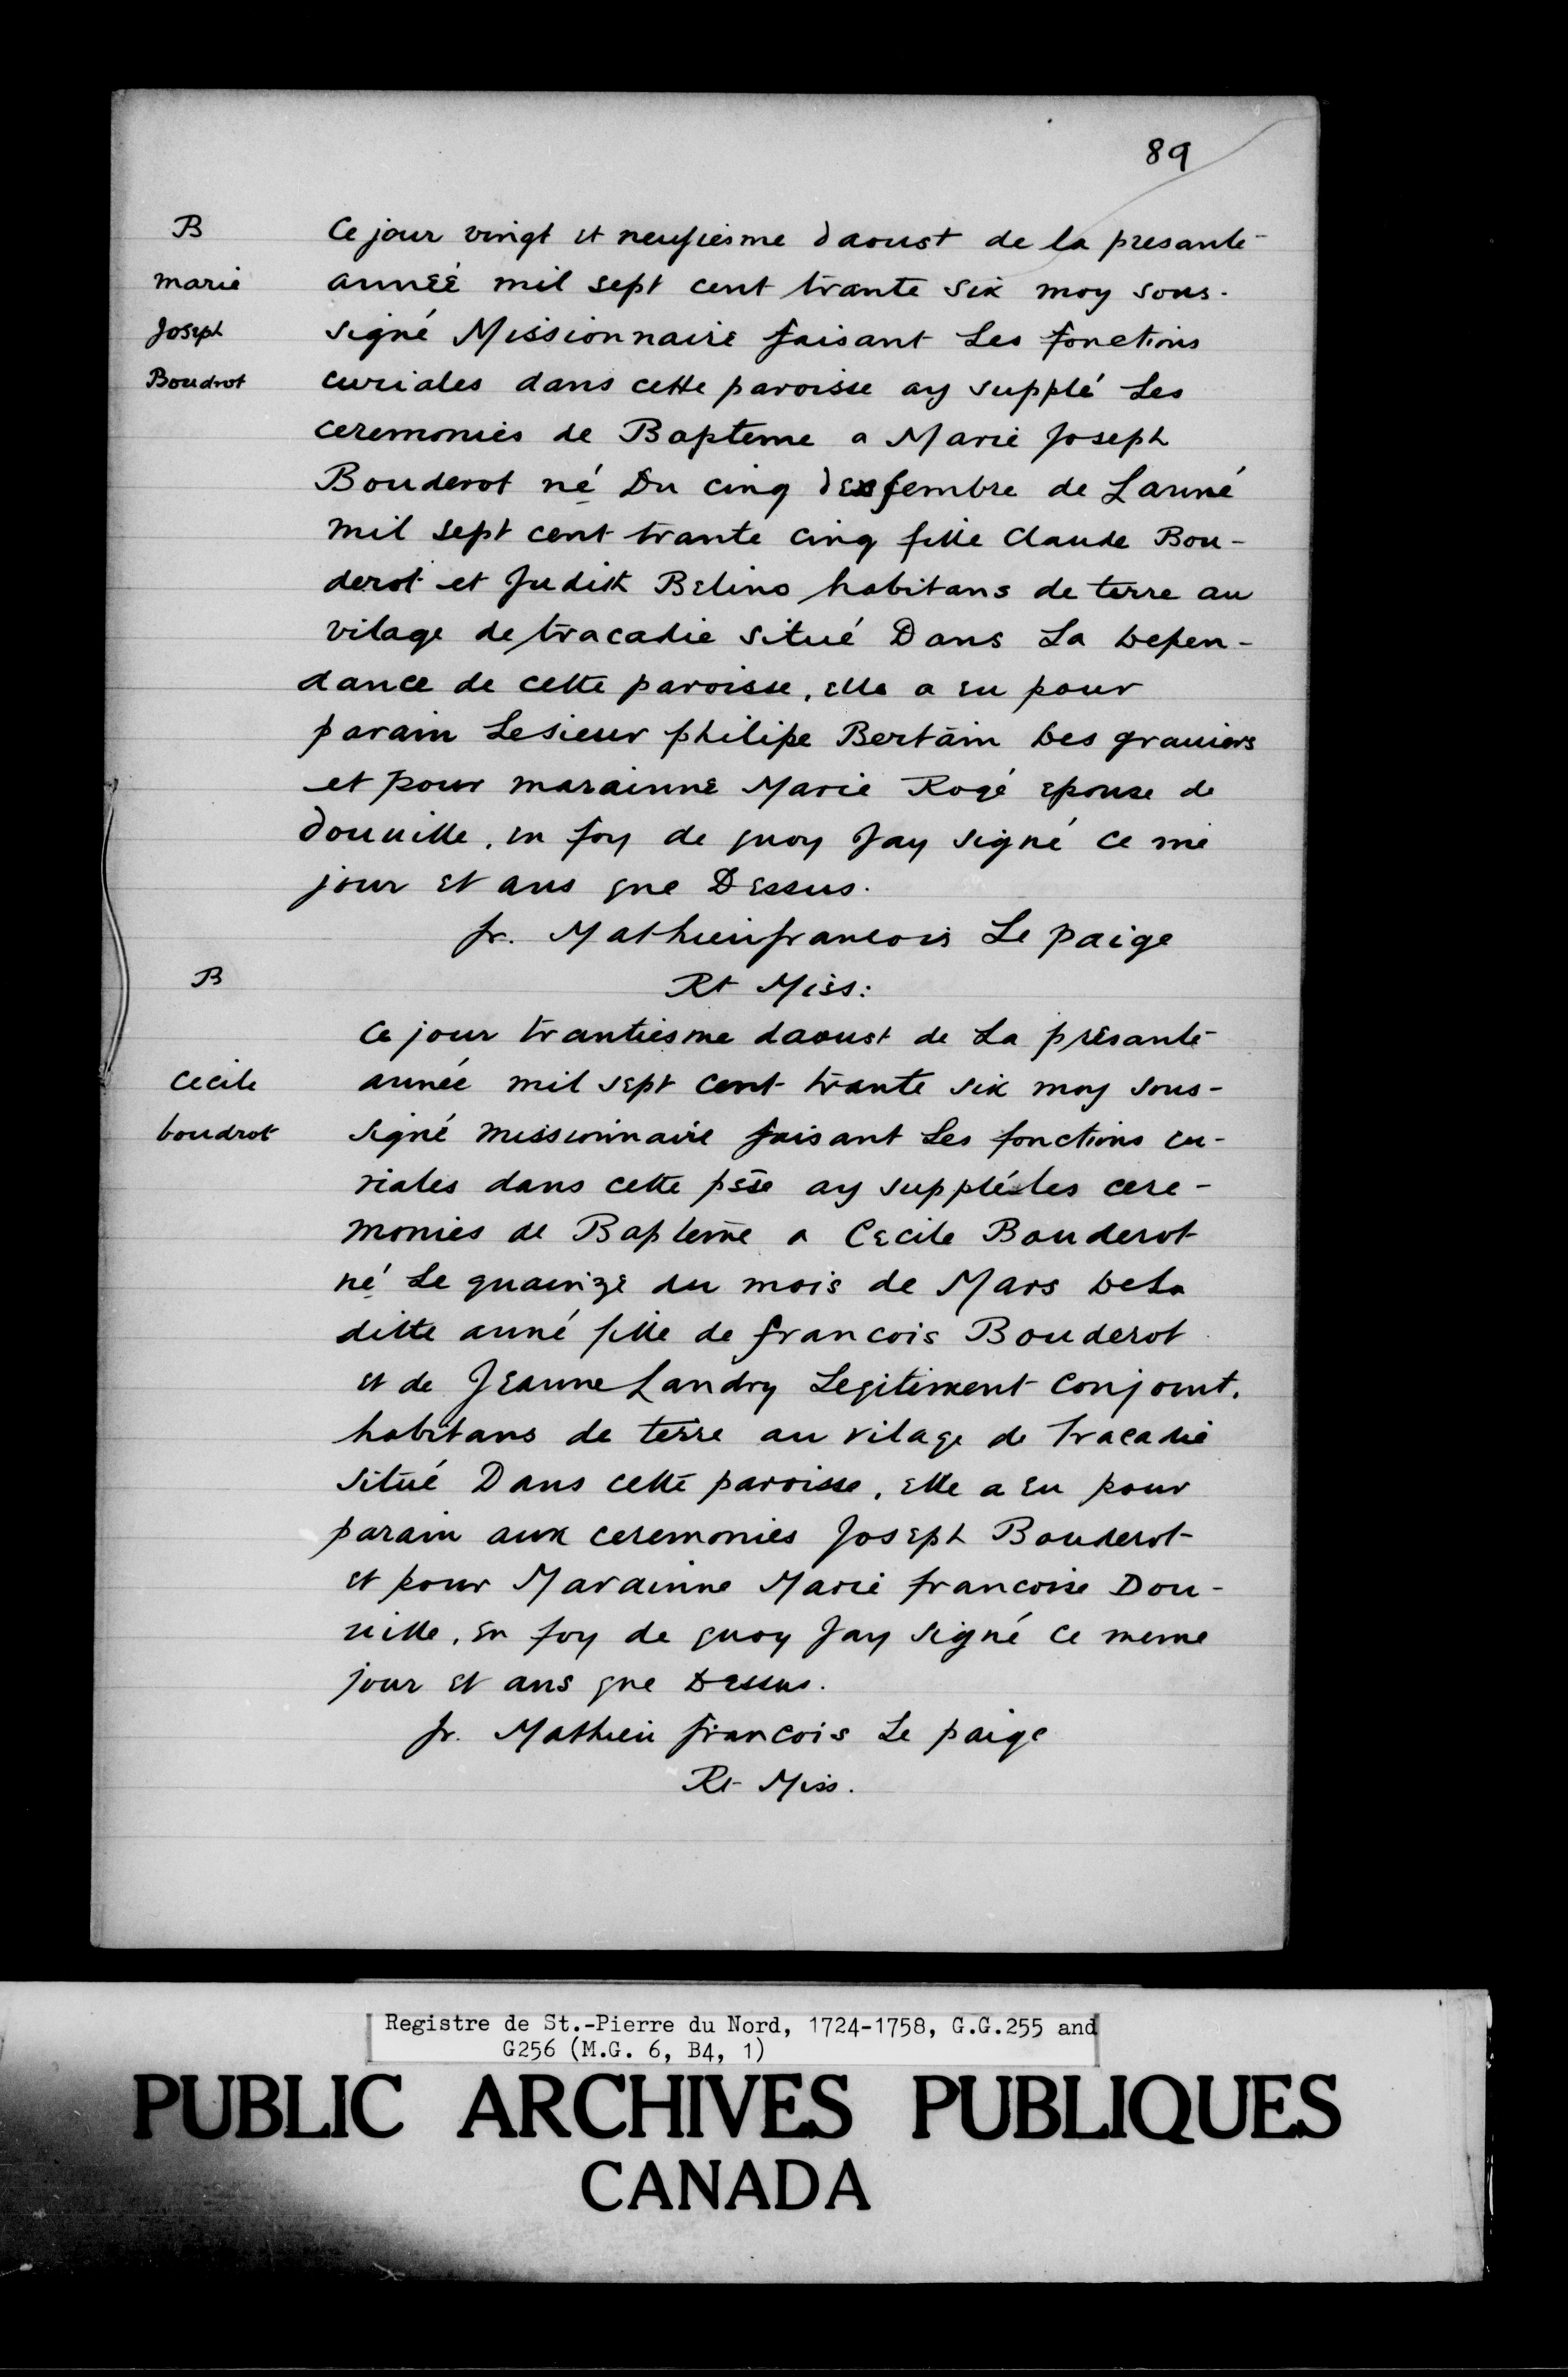 89
B
Ce jour vingt et neufiesme daoust de la presante
marie
annéé mil sept cent trante six moy sous-
Joseph
signé Missionnaire faisant Les fonctions
Boudrot
curiales dans cette paroisse ay supplé Les
ceremonies de Bapteme a Marie Joseph
Bouderot né Du cinq dexfembre de Lanné
mil sept cent trante cinq fille Claude Bou-
derot et Judith Belino habitans de terre au
vilage de tracadie situé Dans La Depen-
dance de cette paroisse, elle a eu pour
parain Lesieur philipe Bertain Des grauiers
et pour marainne Marie Rogé epouse de
douuille, en foy de quoy Jay signé ce me
jour et ans que Dessus.
fr. Mathieufrancois Le paige
B
Rt Miss:
Ce jour trantiesme daoust de La présante
Cecile
année mil sept cent trante six moy sous-
boudrot
signé missionnaire faisant Les fonctions cu-
riales dans cette psse ay suppléeles cere-
monies de Bapteme a Cecile Bouderot
né Le quainze du mois de Mars DeLa
ditte anné fille de francois Bouderot
et de Jeanne Landry Legitiment conjoint.
habitans de terre au vilage de Tracadie
situé Dans cette paroisse, elle a eu pour
parain aux ceremonies Joseph Bouderot
et pour Marainne Marie francoise Dou-
uille, en foy de quoy Jay signé ce meme
jour et ans que Dessus.
fr. Mathieu francois Le paige
Rt Miss.
Registre de St.-Pierre du Nord, 1724-1758, G.G.255 and
G256 (M.G. 6, B4, 1)
PUBLIC ARCHIVES PUBLIQUES
CANADA